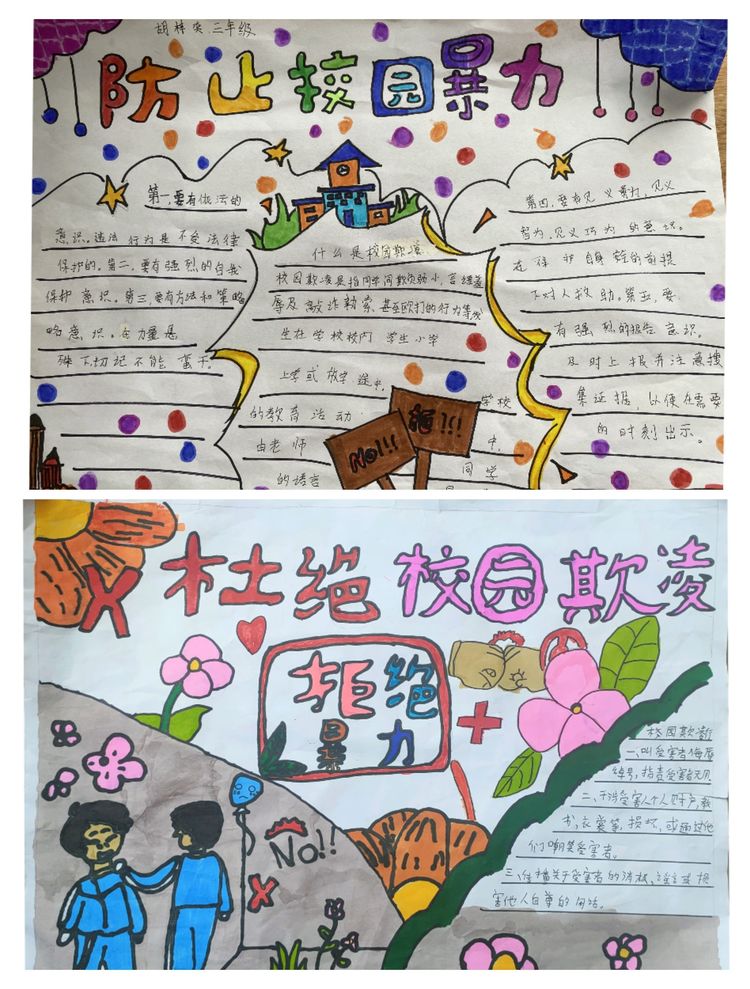 三年级
防止校园暴力
第一,要有做法的
意识。违法行为是不受法律
保护的。第二,要有强烈的自我
保护意识。第三,要有方法和策略
意识。
切记不能蛮干。
什么是校园欺凌
校园欺凌是指同学间欺负弱小、言语羞
辱及敲诈勒索甚至欧打的行为等发
生在学校校内 学生小学
上学或放学途中。
学校
的教育活动
中,
由老师
同学
的语言
No!!!
拒!!!
第四,要有见义勇为,见义
智为,见义巧为的意识。
在保护自身的前提
下对人救助。第五,要
有强烈的报告意识。
及时上报并注意搜
集证据,以便在需要
的时刻出示。
杜绝校园欺凌
拒绝
暴力
No!!
校园欺凌
一、叫受害者侮辱
绰号,指责受害者无用
二、干涉受害人个人财产,教
书,衣裳等,损坏,或通过他
们嘲笑受害者。
三、传播关于受害者的消极、谣言或损
害他人自尊的闲话。